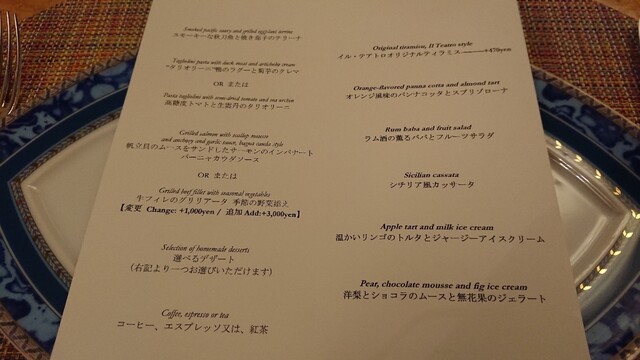 Smoked pacific saury and grilled eggplant terrine
スモーキーな秋刀魚と焼き茄子のテリーナ
Tagliolini pasta with duck meat and artichoke cream
"タリオリーニ"鴨のラグーと菊芋のクレマ
OR または
Pasta tagliolini with semi-dried tomato and sea urchin
高糖度トマトと生雲丹のタリオリーニ
Grilled salmon with scallop mousse
and anchovy and garlic sauce, bagna cauda style
帆立貝のムースをサンドしたサーモンのインパナート
バーニャカウダソース
OR または
Grilled beef fillet with seasonal vegetables
牛フィレのグリリアータ 季節の野菜添え
【変更 Change: +1,000yen / 追加 Add:+3,000yen】
Selection of homemade desserts
選べるデザート
(右記より一つお選びいただけます)
Coffee, espresso or tea
コーヒー、エスプレッソ又は、紅茶
Original tiramisu, Il Teatro style
イル・テアトロオリジナルティラミス———+470yen
Orange-flavored panna cotta and almond tart
オレンジ風味のパンナコッタとスブリゾローナ
Rum baba and fruit salad
ラム酒の薫るババとフルーツサラダ
Sicilian cassata
シチリア風カッサータ
Apple tart and milk ice cream
温かいリンゴのトルタとジャージーアイスクリーム
Pear, chocolate mousse and fig ice cream
洋梨とショコラのムースと無花果のジェラート